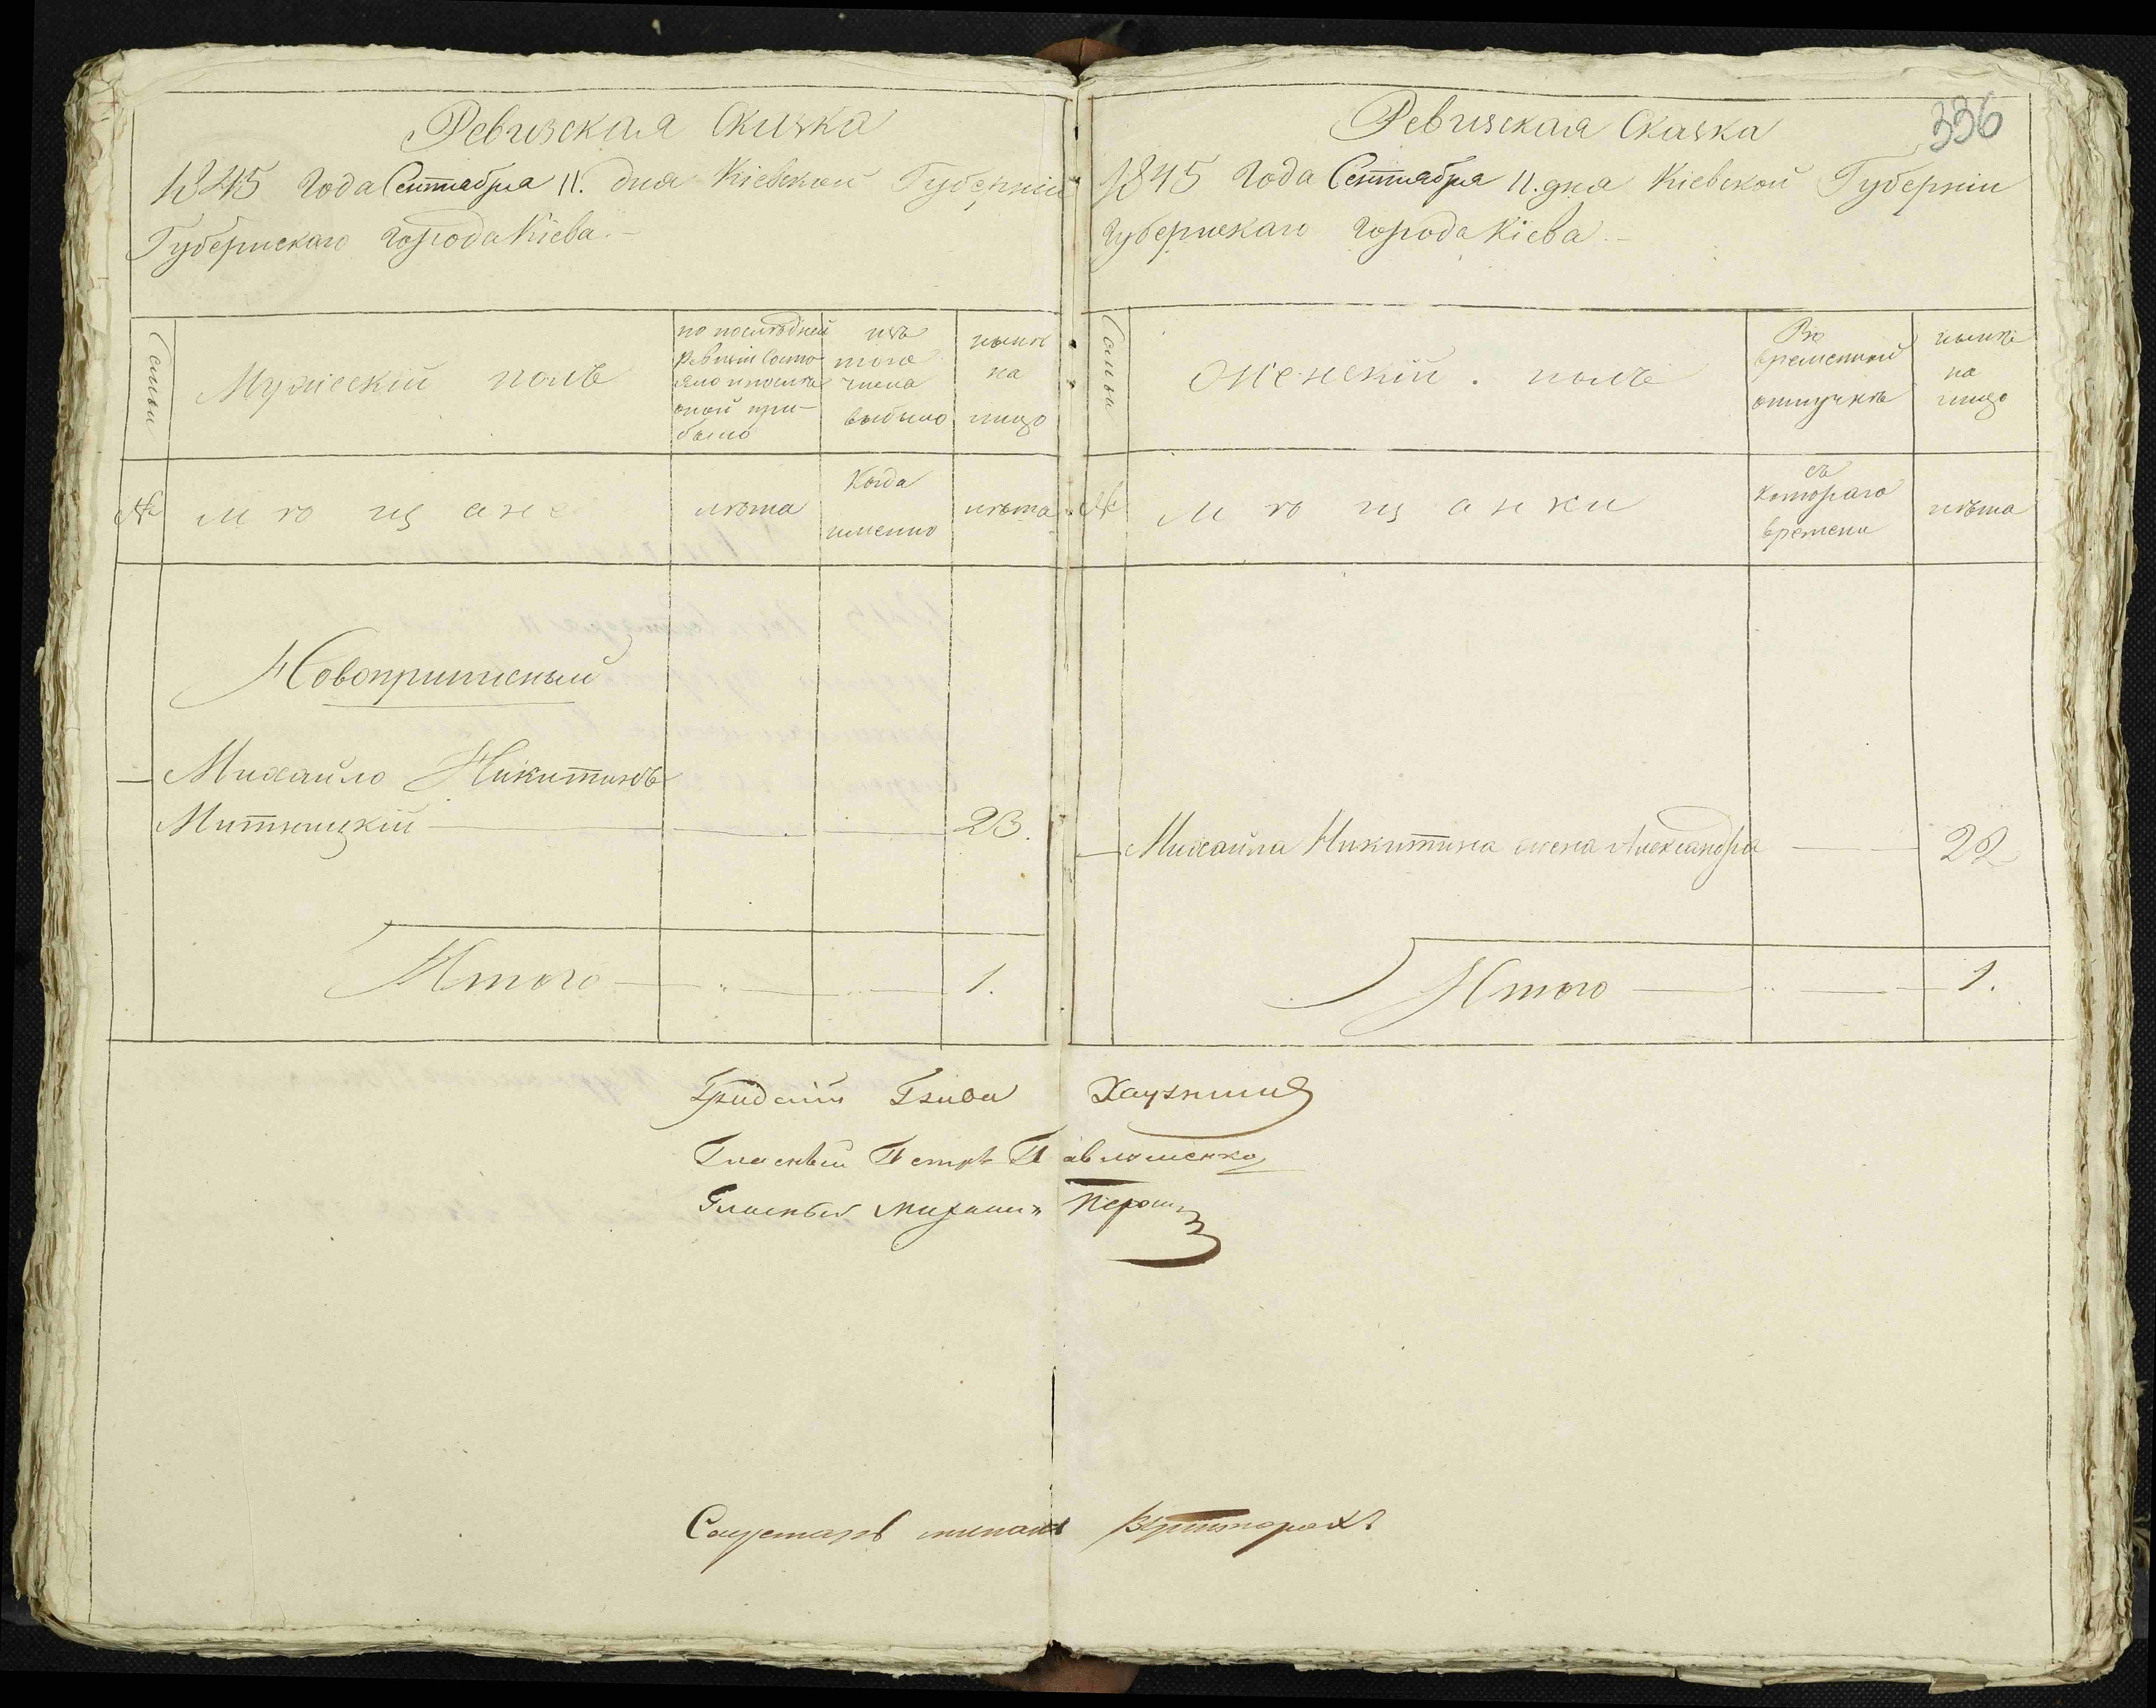 Ревизская Сказка
1845 года Сентября 11. дня Кіевской Губерніи
Губернскаго города Кіева.
Семьи
Мужескій полъ
по последней
Ревизіи состо-
яло и после
оной при-
было
изъ
того
числа
выбыло
ныне
на
лицо
№
мѣщане
лѣта
Когда
именно
лѣта
Новоприписный
Михайло Никитинъ
Митницкій 23.
Итого 1.
336
Ревизская Сказка
1845 года Сентября 11. дня Кіевской Губерніи
Губернскаго города Кіева.
Семьи
Женскій полъ
Во
временной
отлучкѣ
ныне
на
лицо
№
мѣщанки
съ
котораго
времени
лѣта
Михайла Никитина жена Александра 22
Итого 1.
Глава
Гласный Петръ Павлошенко
Гласный